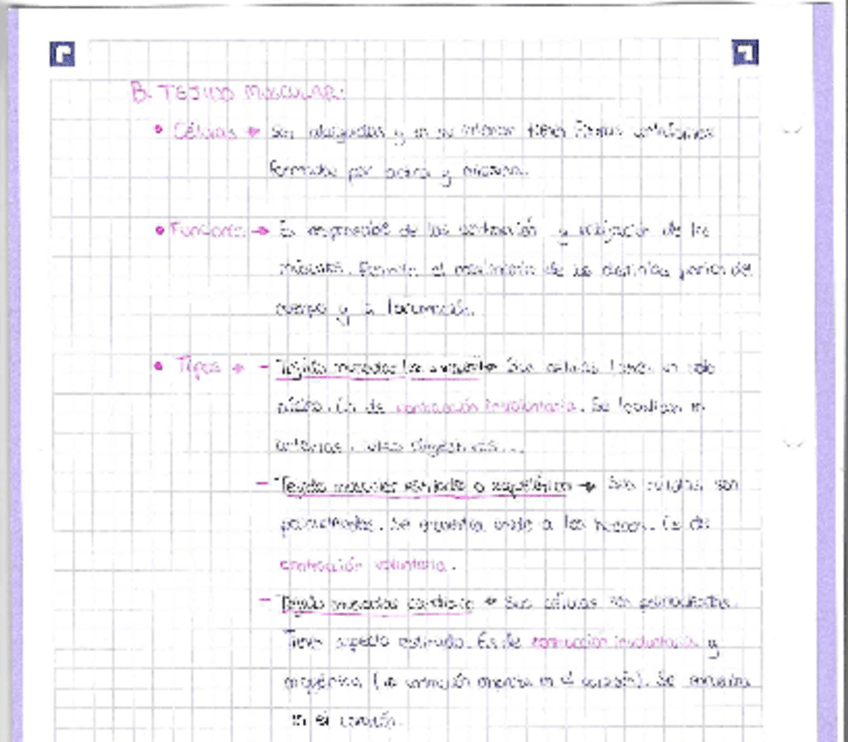 B. TEJIDO MUSCULAR:
• Células → Son alargadas y en su interior tienen fibras contráctiles
formadas por actina y miosina.
• Funciones → Es responsable de las contracción y relajación de los
músculos. Permite el movimiento de las distintas partes del
cuerpo y la locomoción.
• Tipos → - Tejido muscular liso → Sus células tienen un solo
núcleo. Es de contracción involuntaria. Se localizan en
arterias, digestivas...
- Tejido muscular estriado o esquelético → Sus células son
polinucleadas. Se encuentra unido a los huesos. Es de
contracción voluntaria.
- Tejido muscular cardíaco → Sus células son
Tienen aspecto estriado. Es de contracción involuntaria y
(la contracción en el corazón). Se encuentra
en el corazón.